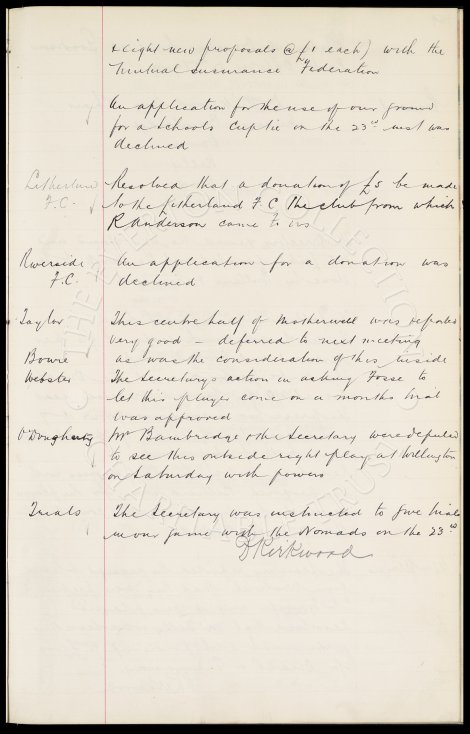 & Eight new proposals @ £1 each) with the
Mutual Insurance Federation
An application for the use of our ground
for a Schools Cup tie on the 23rd inst was
declined
Litherland Resolved that a donation of £5 be made
F.C. to the Litherland F.C. the club from which
R Anderson came to us
Riverside An application for a donation was
F.C. declined
Taylor This centre half of Motherwell was reported
very good – deferred to next meeting
Bowie as was the consideration of this inside
Webster The Secretary's action in asking Fosse to
let this player come on a months trial
was approved
O'Dougherty Mr Bainbridge & the Secretary were deputed
to see this outside right play at Wellington
on Saturday with powers
Trials The Secretary was instructed to give trials
in our game with the Nomads on the 23rd
D Kirkwood